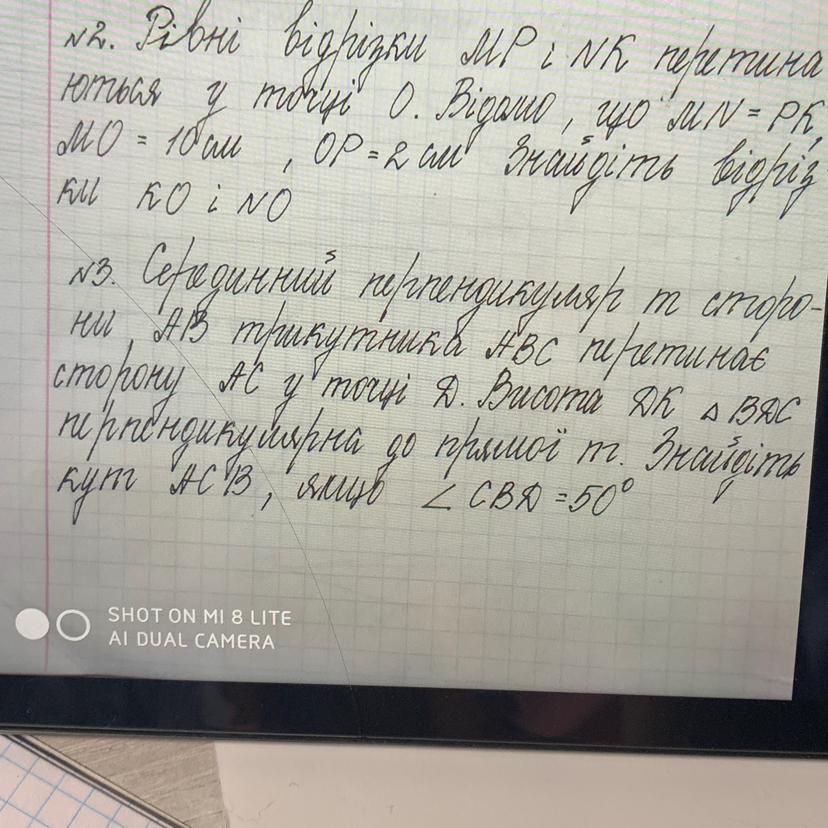 №2. Рівні відрізки MP і NK перетина
ються у точці O. Відомо, що MN = PK,
MO = 10 см , OP = 2 см Знайдіть відріз-
ки KO і NO
№3. Серединний перпендикуляр m сторо-
ни AB трикутника ABC перетинає
сторону AC у точці D. Висота DK △ BDC
перпендикулярна до прямої m. Знайдіть
кут ACB, якщо ∠ CBD = 50°
SHOT ON MI 8 LITE
AI DUAL CAMERA